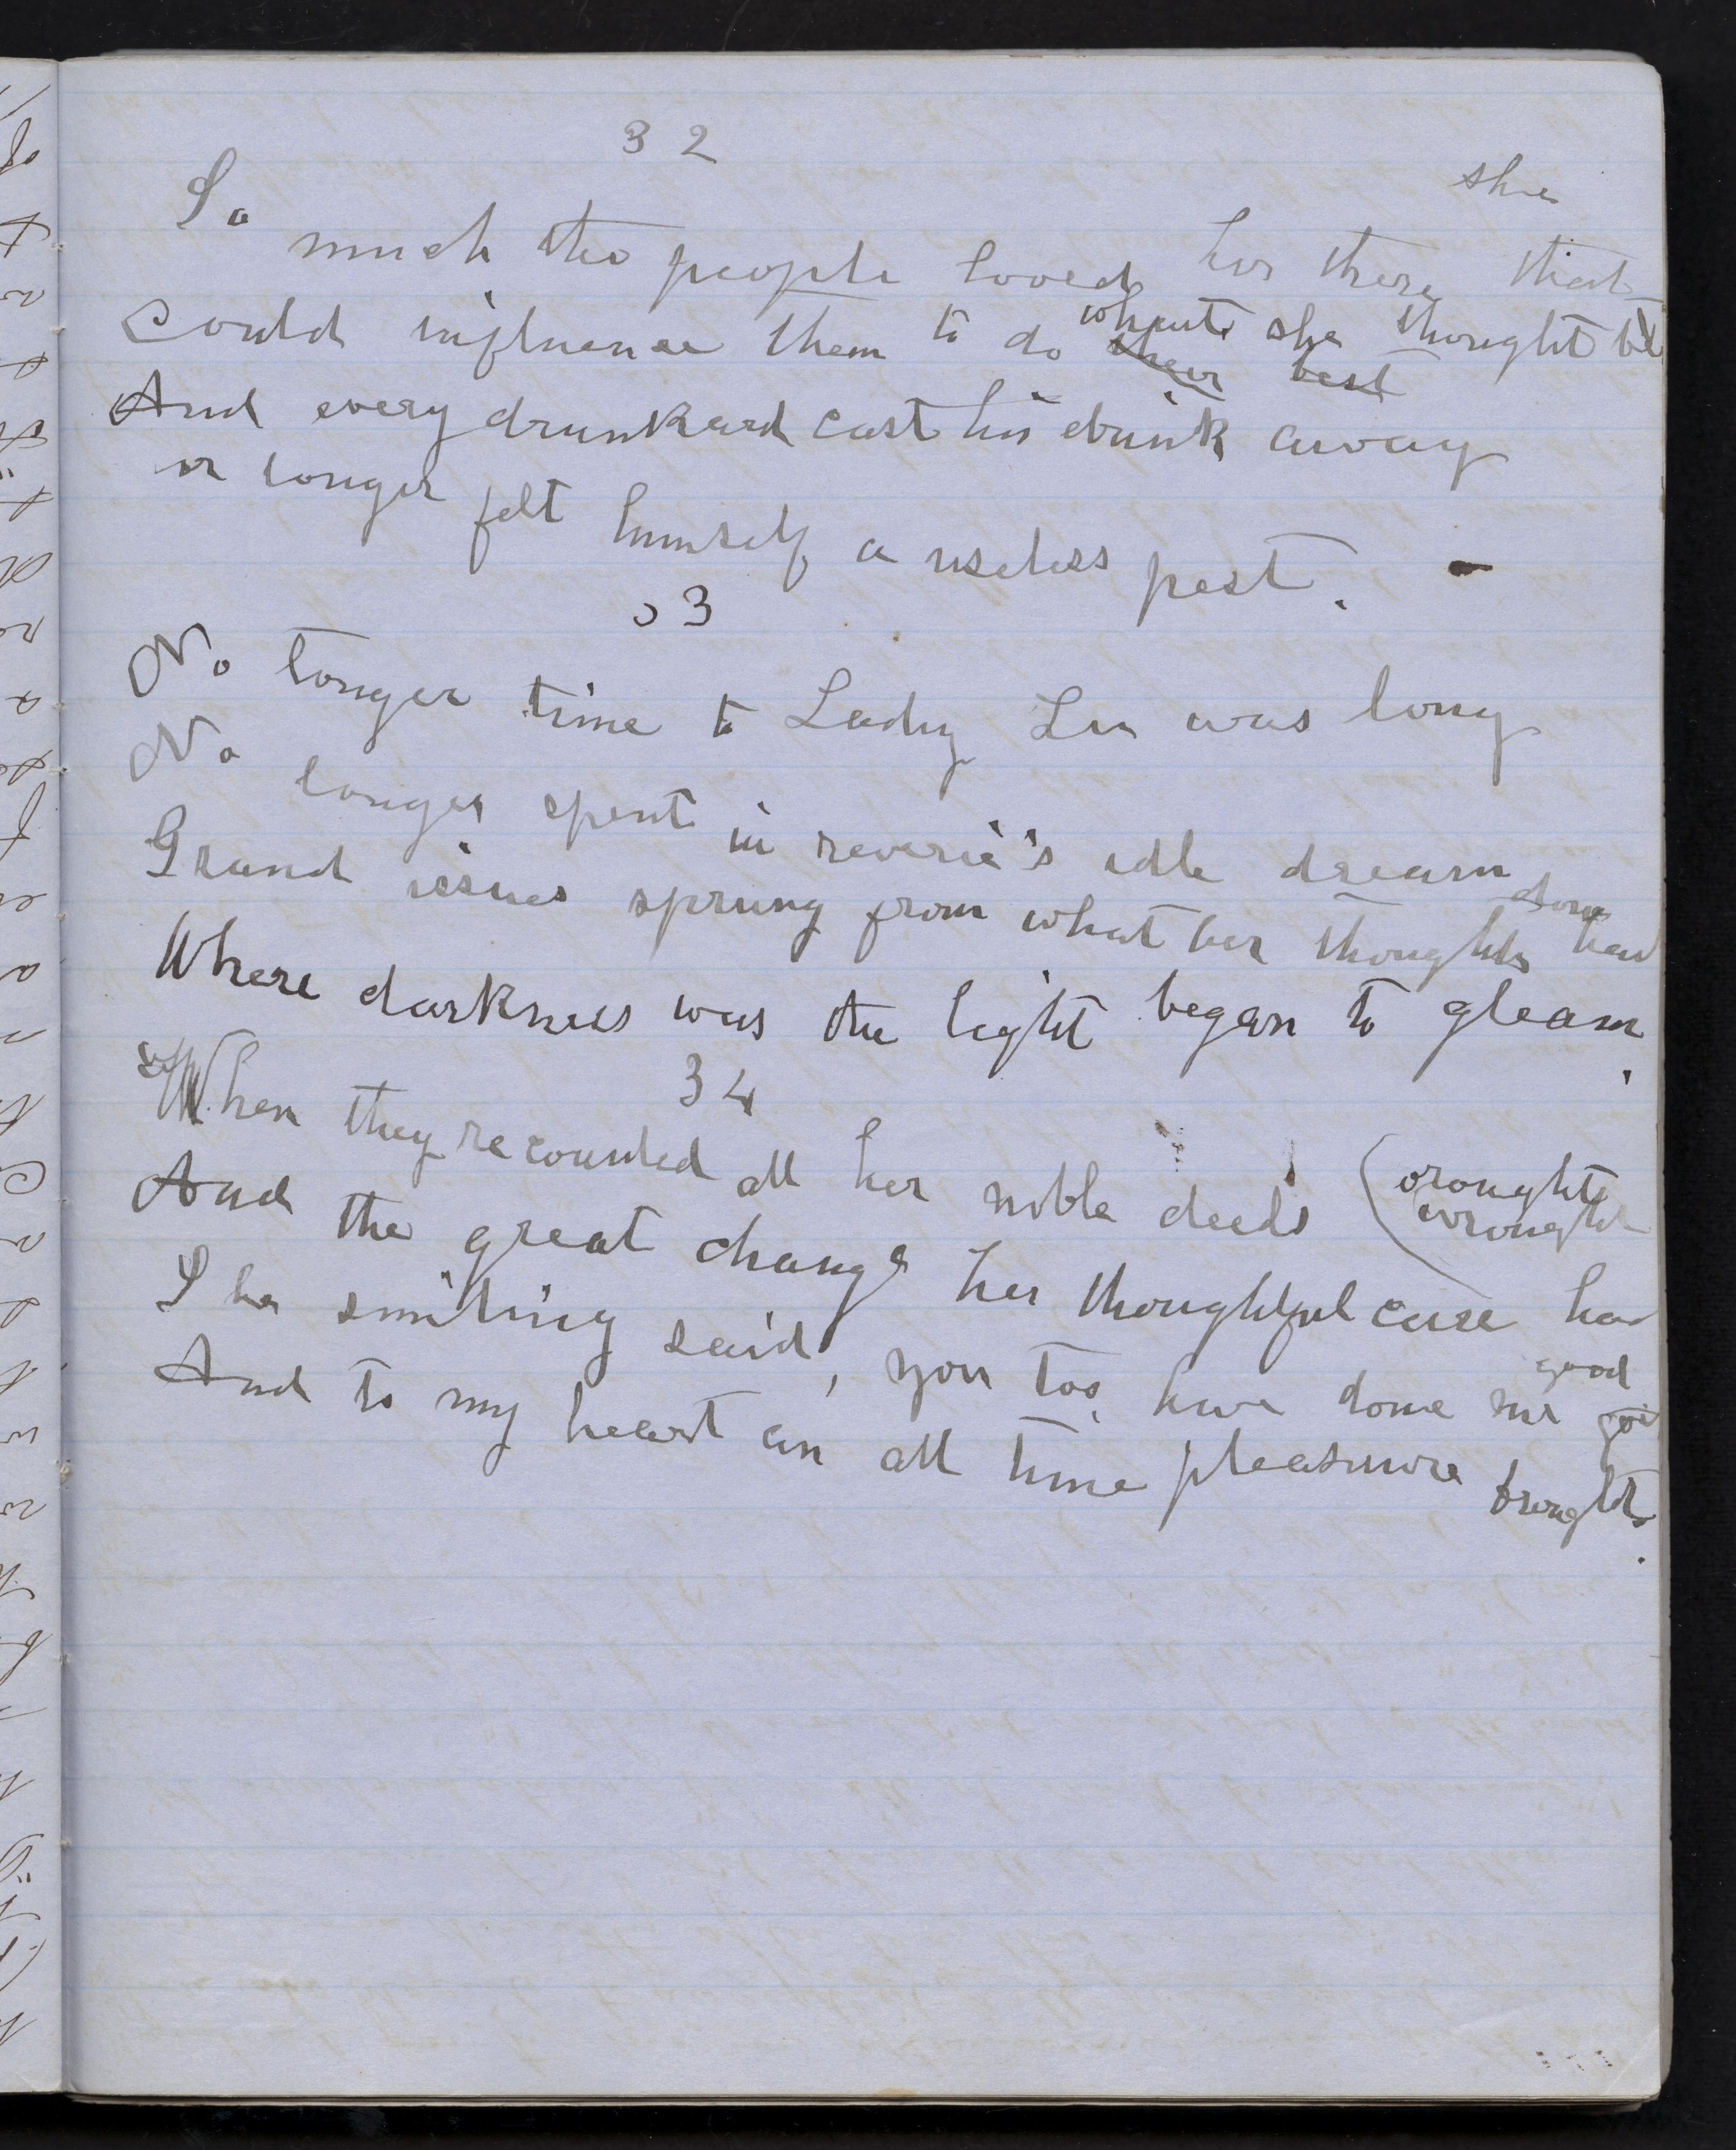 32
So much the people loved her there that she
could influence them to do what she thought
their best
And every drunkard cast his drink away
or longer felt himself a useless pest.
33
No longer time to Lady Lu was long
No longer spent in reverie's idle dream
Grand issues sprung from what her thoughts had done
Where darkness was the light began to gleam.
34
When they recounted all her noble deeds
And the great change her thoughtful care had (wrought
wrought
She smiling said, you too, have done me good
And to my heart an all time pleasure brought.